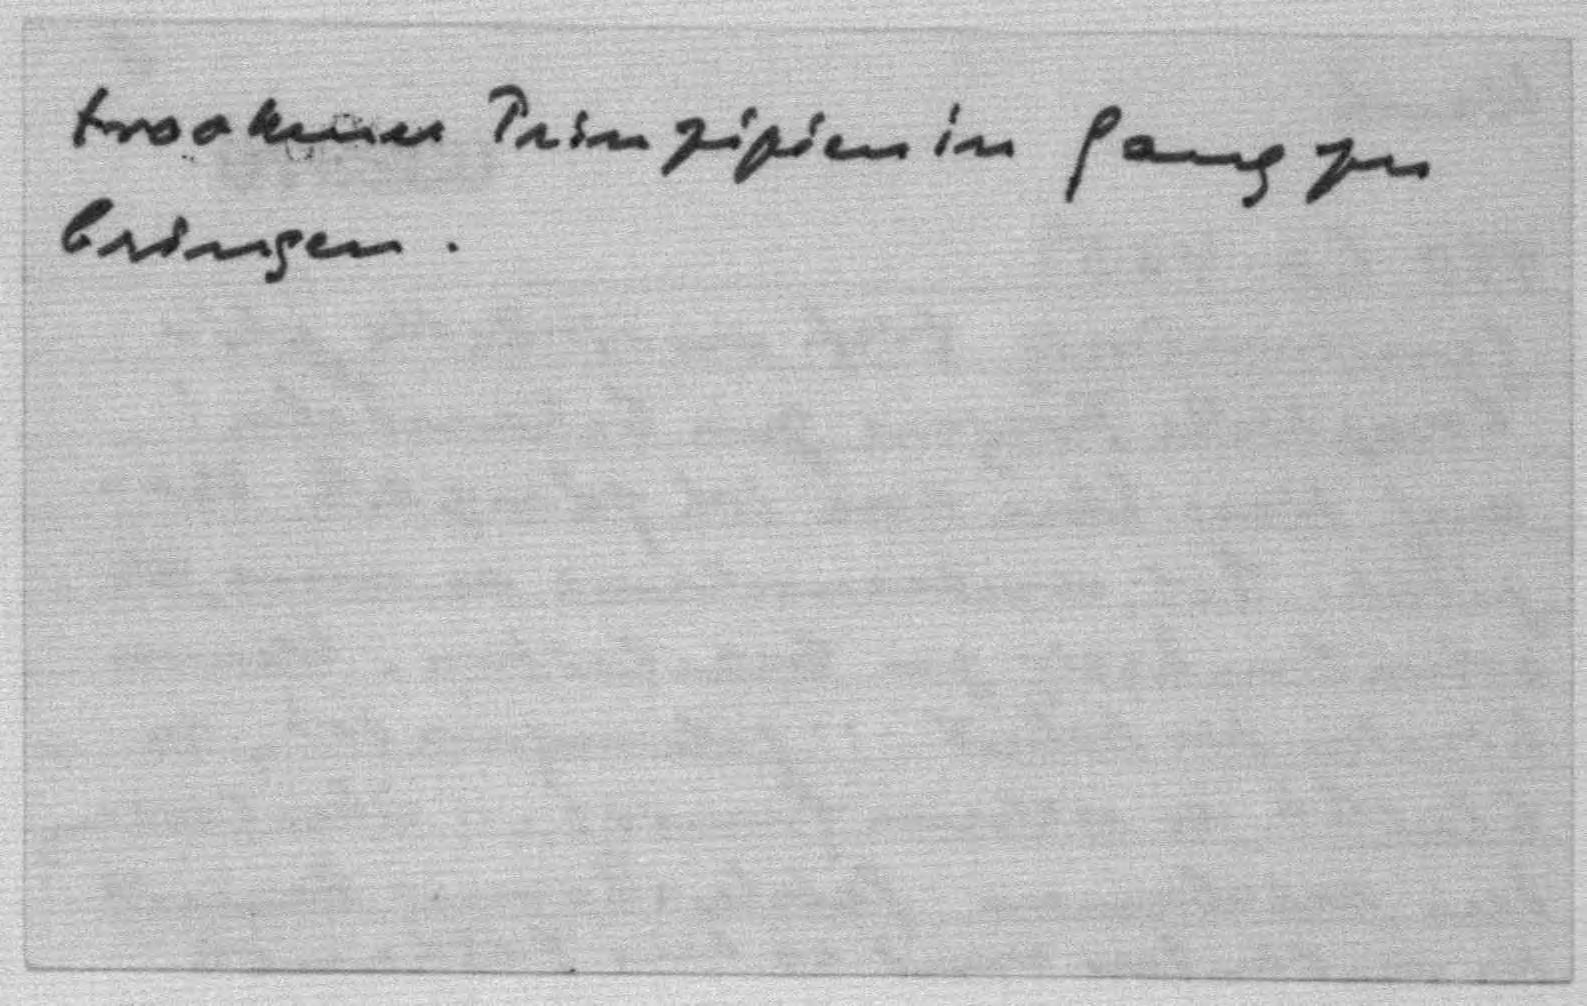 trockener Prinzipien in Gang zu
bringen.